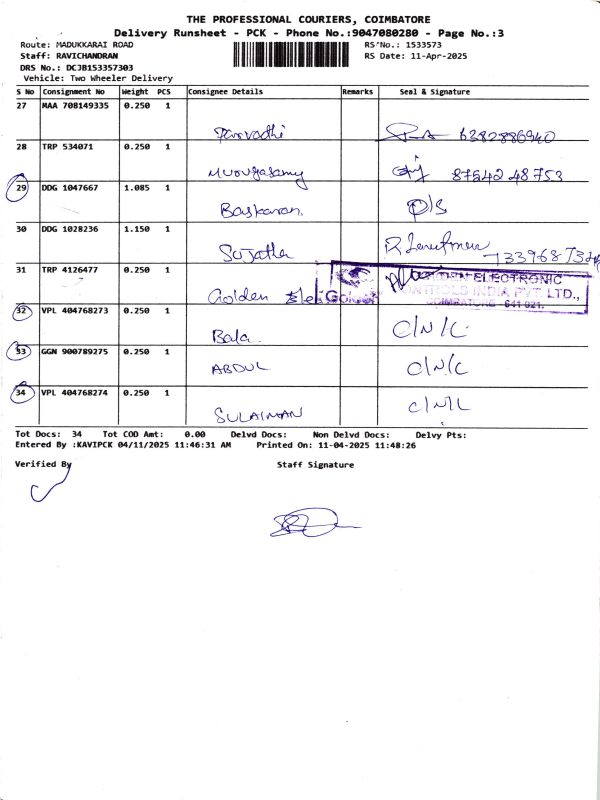 THE PROFESSIONAL COURIERS, COIMBATORE
Delivery Runsheet - PCK - Phone No.:9047080280 - Page No.:3
Route: MADUKKARAI ROAD RS No.: 1533573
Staff: RAVICHANDRAN RS Date: 11-Apr-2025
DRS No.: DCJB153357303
Vehicle: Two Wheeler Delivery
S No Consignment No Weight PCS Consignee Details Remarks Seal & Signature
27 MAA 708149335 0.250 1
Parvadhi 6382886940
28 TRP 534071 0.250 1
Murugasamy 87542 48753
29 DDG 1047667 1.085 1
Baskaran D/S
30 DDG 1028236 1.150 1
Sujatha
31 TRP 4126477 0.250 1
Golden ELECTRONIC
CONTROLS INDIA PVT LTD.,
COIMBATORE - 641 021.
32 VPL 404768273 0.250 1
Bala C/N/C
33 GGN 900789275 0.250 1
ABDUL C/N/C
34 VPL 404768274 0.250 1
SULAIMAN C/N/L
Tot Docs: 34 Tot COD Amt: 0.00 Delvd Docs: Non Delvd Docs: Delvy Pts:
Entered By :KAVIPCK 04/11/2025 11:46:31 AM Printed On: 11-04-2025 11:48:26
Verified By Staff Signature